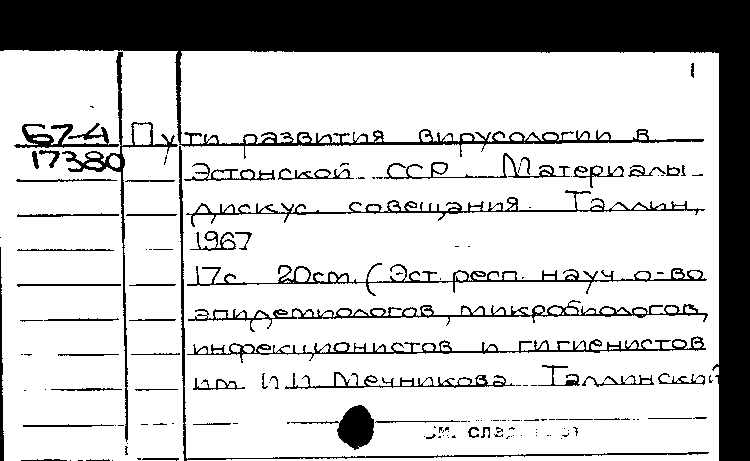 1
67-4 Пути развития вирусологии в
17380 Эстонской ССР. Материалы
дискус. совещания. Таллин,
1967
17с. 20см. (Эст. респ. науч. о-во
эпидемиологов, микробиологов,
инфекционистов и гигиенистов
им. И.И. Мечникова. Таллинский
См. след.